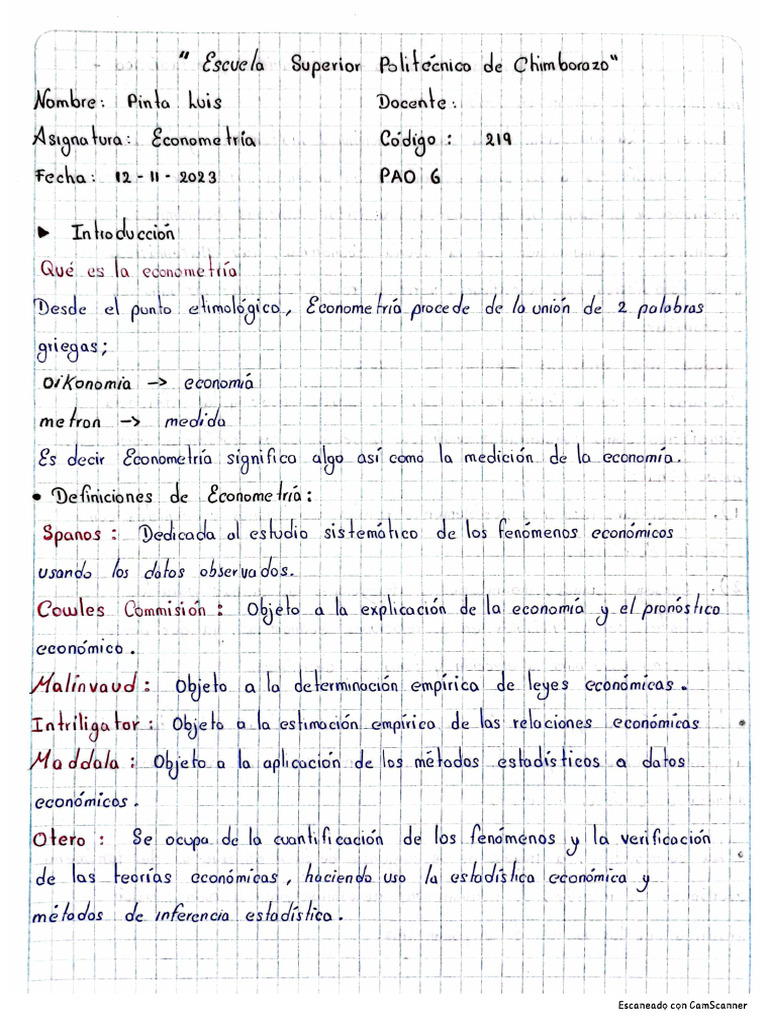 " Escuela Superior Politécnica de Chimborazo"
Nombre: Pinta Luis Docente:
Asignatura: Econometría Código: 219
Fecha: 12-11-2023 PAO 6
► Introducción
Qué es la econometría
Desde el punto etimológico, Econometría procede de la unión de 2 palabras
griegas;
Oikonomia -> economía
metron -> medida
Es decir Econometría significa algo así como la medición de la economía.
• Definiciones de Econometría:
Spanos: Dedicada al estudio sistemático de los fenómenos económicos
usando los datos observados.
Cowles Commisión: Objeto a la explicación de la economía y el pronóstico
económico.
Malinvaud: Objeto a la determinación empírica de leyes económicas.
Intriligator: Objeto a la estimación empírica de las relaciones económicas
Maddala: Objeto a la aplicación de los métodos estadísticos a datos
económicos.
Otero: Se ocupa de la cuantificación de los fenómenos y la verificación
de las teorías económicas, haciendo uso la estadística económica y
métodos de inferencia estadística.
Escaneado con CamScanner